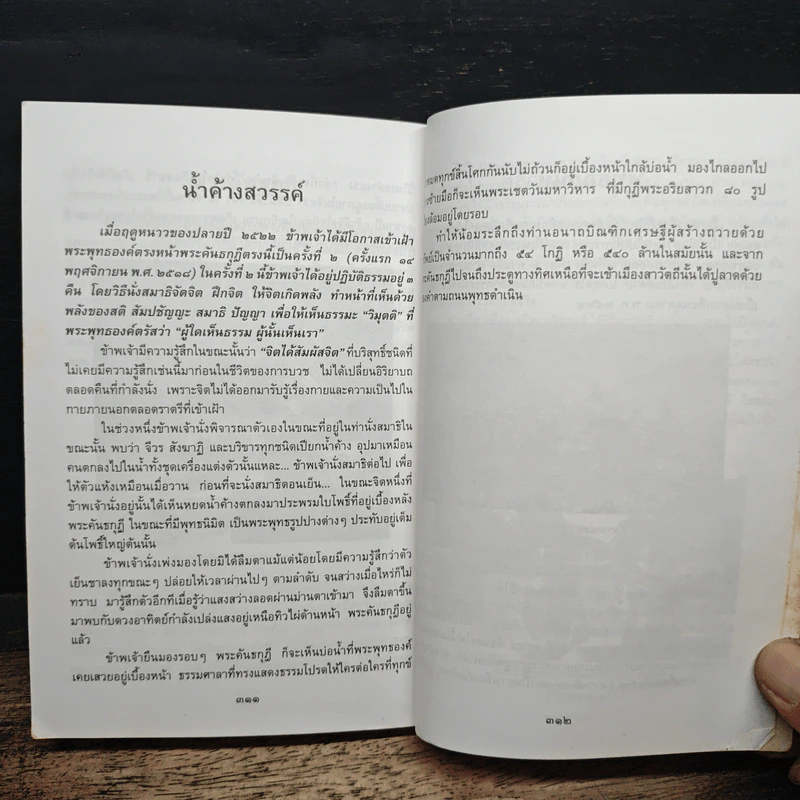 น้ำค้างสวรรค์
เมื่อฤดูหนาวของปลายปี ๒๕๒๒ ข้าพเจ้าได้มีโอกาสเข้าเฝ้า
พระพุทธองค์ตรงหน้าพระคันธกุฎีตรงนี้เป็นครั้งที่ ๒ (ครั้งแรก ๑๔
พฤศจิกายน พ.ศ. ๒๕๑๘) ในครั้งที่ ๒ นี้ข้าพเจ้าได้อยู่ปฏิบัติธรรมอยู่ ๓
คืน โดยวิธีนั่งสมาธิจัดจิต ฝึกจิต ให้จิตเกิดพลัง ทำหน้าที่เห็นด้วย
พลังของสติ สัมปชัญญะ สมาธิ ปัญญา เพื่อให้เห็นธรรมะ “วิมุตติ” ที่
พระพุทธองค์ตรัสว่า “ผู้ใดเห็นธรรม ผู้นั้นเห็นเรา”
ข้าพเจ้ามีความรู้สึกในขณะนั้นว่า “จิตได้สัมผัสจิต” ที่บริสุทธิ์ชนิดที่
ไม่เคยมีความรู้สึกเช่นนี้มาก่อนในชีวิตของการบวช ไม่ได้เปลี่ยนอิริยาบถ
ตลอดคืนที่กำลังนั่ง เพราะจิตไม่ได้ออกมารับรู้เรื่องกายและความเป็นไปใน
กายภายนอกตลอดราตรีที่เข้าเฝ้า
ในช่วงหนึ่งข้าพเจ้านั่งพิจารณาตัวเองในขณะที่อยู่ในท่านั่งสมาธิใน
ขณะนั้น พบว่า จีวร สังฆาฏิ และบริขารทุกชนิดเปียกน้ำค้าง อุปมาเหมือน
คนตกลงไปในน้ำทั้งชุดเครื่องแต่งตัวนั้นแหละ... ข้าพเจ้านั่งสมาธิต่อไป เพื่อ
ให้ตัวแห้งเหมือนเมื่อวาน ก่อนที่จะนั่งสมาธิตอนเย็น... ในขณะจิตหนึ่งที่
ข้าพเจ้านั่งอยู่นั้นได้เห็นหยดน้ำค้างตกลงมาประพรมใบโพธิ์ที่อยู่เบื้องหลัง
พระคันธกุฎี ในขณะที่มีพุทธนิมิต เป็นพระพุทธรูปปางต่างๆ ประทับอยู่เต็ม
ต้นโพธิ์ใหญ่ต้นนั้น
ข้าพเจ้านั่งเพ่งมองโดยมิได้ลืมตาแม้แต่น้อยโดยมีความรู้สึกว่าตัว
เย็นชาลงทุกขณะๆ ปล่อยให้เวลาผ่านไปๆ ตามลำดับ จนสว่างเมื่อไหร่ก็ไม่
ทราบ มารู้สึกตัวอีกทีเมื่อรู้ว่าแสงสว่างลอดผ่านม่านตาเข้ามา จึงลืมตาขึ้น
มาพบกับดวงอาทิตย์กำลังเปล่งแสงอยู่เหนือทิวไผ่ด้านหน้า พระคันธกุฎีอยู่
แล้ว
ข้าพเจ้ายืนมองรอบๆ พระคันธกุฎี ก็จะเห็นบ่อน้ำที่พระพุทธองค์
เคยเสวยอยู่เบื้องหน้า ธรรมศาลาที่ทรงแสดงธรรมโปรดให้ใครต่อใครที่ทุกข์
๓๑๑
หมดทุกข์สิ้นโศกกันนับไม่ถ้วนก็อยู่เบื้องหน้าใกล้บ่อน้ำ มองไกลออกไป
ซ้ายมือก็จะเห็นพระเชตวันมหาวิหาร ที่มีกุฏิพระอริยสาวก ๘๐ รูป
ล้อมอยู่โดยรอบ
ทำให้น้อมระลึกถึงท่านอนาถบิณฑิกเศรษฐีผู้สร้างถวายด้วย
เป็นจำนวนมากถึง ๕๔ โกฏิ หรือ ๕๔๐ ล้านในสมัยนั้น และจาก
คันธกุฎีไปจนถึงประตูทางทิศเหนือที่จะเข้าเมืองสาวัตถีนั้นได้ปูลาดด้วย
คำตามถนนพุทธดำเนิน
๓๑๒